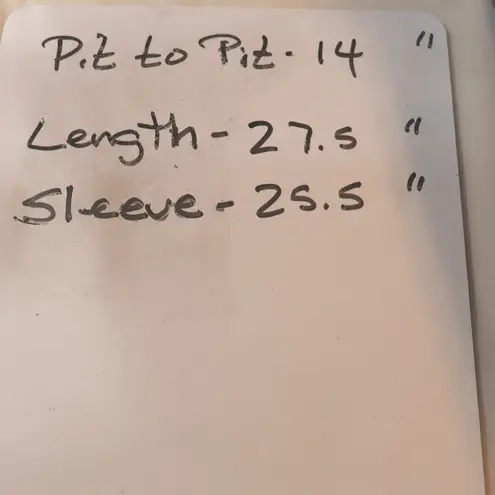 Pit to Pit - 14 "
Length - 27.5 "
Sleeve - 25.5 "